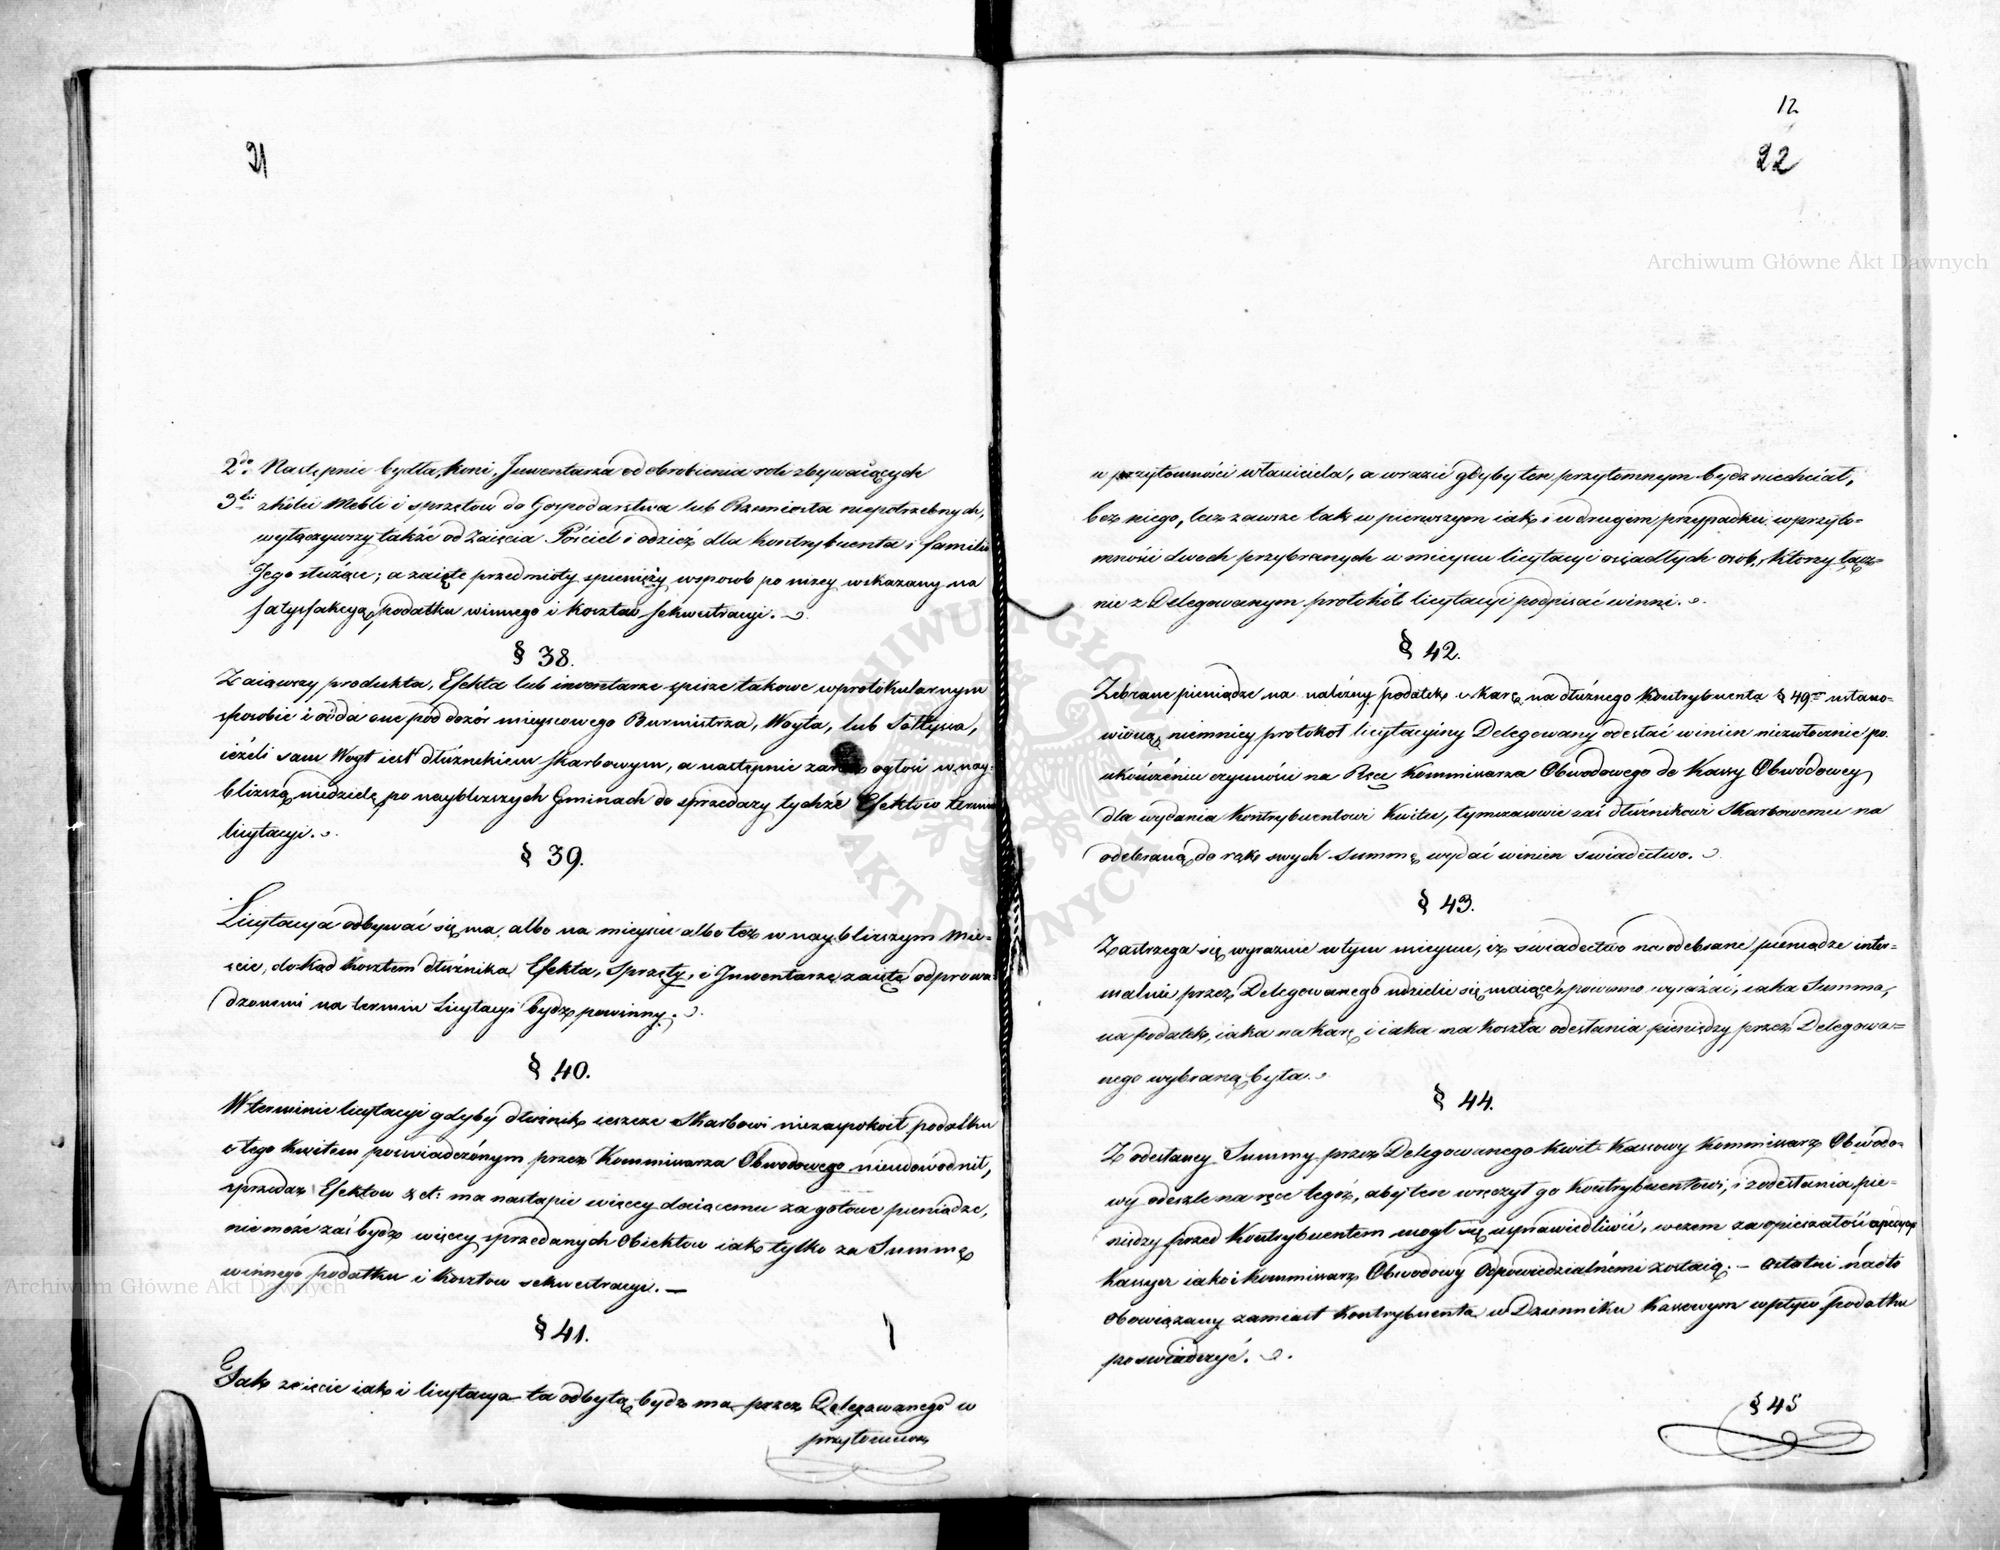 21
2do Następnie bydła, koni, Inwentarza od obrobienia roli zbywaiących
3tio zkolei Mebli i sprzętów do Gospodarstwa lub Rzemiosła niepotrzebnych,
wyłączywszy także od Zaięcia Pościel i odzież dla kontrybuenta i familii
Jego służące; a zaięte przedmioty spienięży wsposob po niżey wskazany na
satysfakcyą podatku winnego i kosztow sekwestracyi.
§ 38.
Zaiąwszy produkta, Efekta lub inwentarze spisze takowe wprotokularnym
sposobie i odda one pod dozór mieyscowego Burmistrza, Woyta, lub Sołtysa,
ieżeli sam Woyt iest dłużnikiem skarbowym, a następnie zaraz ogłosi w nay-
bliższą niedzielę po naybliższych Gminach do sprzedaży tychże Efektów termin
licytacyi.
§ 39.
Licytacya odbywać się ma albo na mieyscu albo też w naybliższym Mie-
ście, dokąd kosztem dłużnika Efekta, Sprzęty, i Inwentarze zaięte odprowa-
dzonemi na termin Licytacyi bydź powinny.
§ 40.
W terminie licytacyi gdyby dłużnik ieszcze Skarbowi niezaspokoił podatku
i tego kwitem poświadczonym przez Kommissarza Obwodowego nieudowodnił,
sprzedaż Efektow &ct: ma nastąpić więcey daiącemu za gotowe pieniądze,
nie może zaś bydź więcey sprzedanych Obiektow iak tylko za Summę
winnego podatku i kosztow sekwestracyi. —
§ 41.
Tak zaięcie iako i licytacya ta odbytą bydź ma przez Delegowanego w
przytomno
12
22
w przytomności właściciela, a wrazie gdyby ten przytomnym bydź niechciał,
bez niego, lecz zawsze tak w pierwszym iak i w drugim przypadku w przyto-
mności dwoch przybranych w mieyscu licytacyi osiadłych osob, którzy łącz-
nie z Delegowanym protokół licytacyi podpisać winni.
§ 42.
Zebrane pieniądze na należny podatek i karę na dłużnego Kontrybuenta § 49m ustano-
wioną niemniey protokoł licytacyiny Delegowany odesłać winien niezwłocznie po
ukończeniu czynności na Ręce Kommissarza Obwodowego do Kassy Obwodowey
dla wydania Kontrybuentowi Kwitu, tymczasowie zaś dłużnikowi Skarbowemu na
odebraną do rąk swych Summę wydać winien świadectwo.
§ 43.
Zastrzega się wyraźnie w tym mieyscu, iż świadectwo na odebrane pieniądze inter-
malnie przez Delegowanego udzielić się maiące, powinno wyrażać, iaka Summa,
na podatek, iaka na karę i iaka na koszta odesłania pieniędzy przez Delegowa-
nego wybraną była.
§ 44.
Z odesłaney Summy przez Delegowanego Kwit Kassowy Kommissarz Obwodo-
wy odeszle na ręce tegoż, aby ten wręczył go Kontrybuentowi, i z odesłania pie-
niędzy przed Kontrybuentem mogł się usprawiedliwić, wczem za opieszałość
Kassyer iako i Kommissarz Obwodowy Odpowiedzialnemi zostaią. — Ostatni nadto
Obowiązany zamiast Kontrybuenta w Dzienniku Kassowym wpływ podatku
poświadczyć.
§ 45
Archiwum Główne Akt Dawnych
Archiwum Główne Akt Dawnych
ARCHIWUM GŁÓWNE AKT DAWNYCH